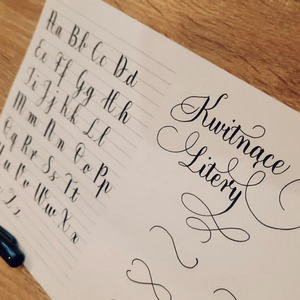 Aa Bb Cc Dd
Ee Ff Gg Hh
Ii Jj Kk Ll
Mm Nn Oo Pp
Qq Rr Ss Tt
Uu Vv Ww Xx
Kwitnące
Litery